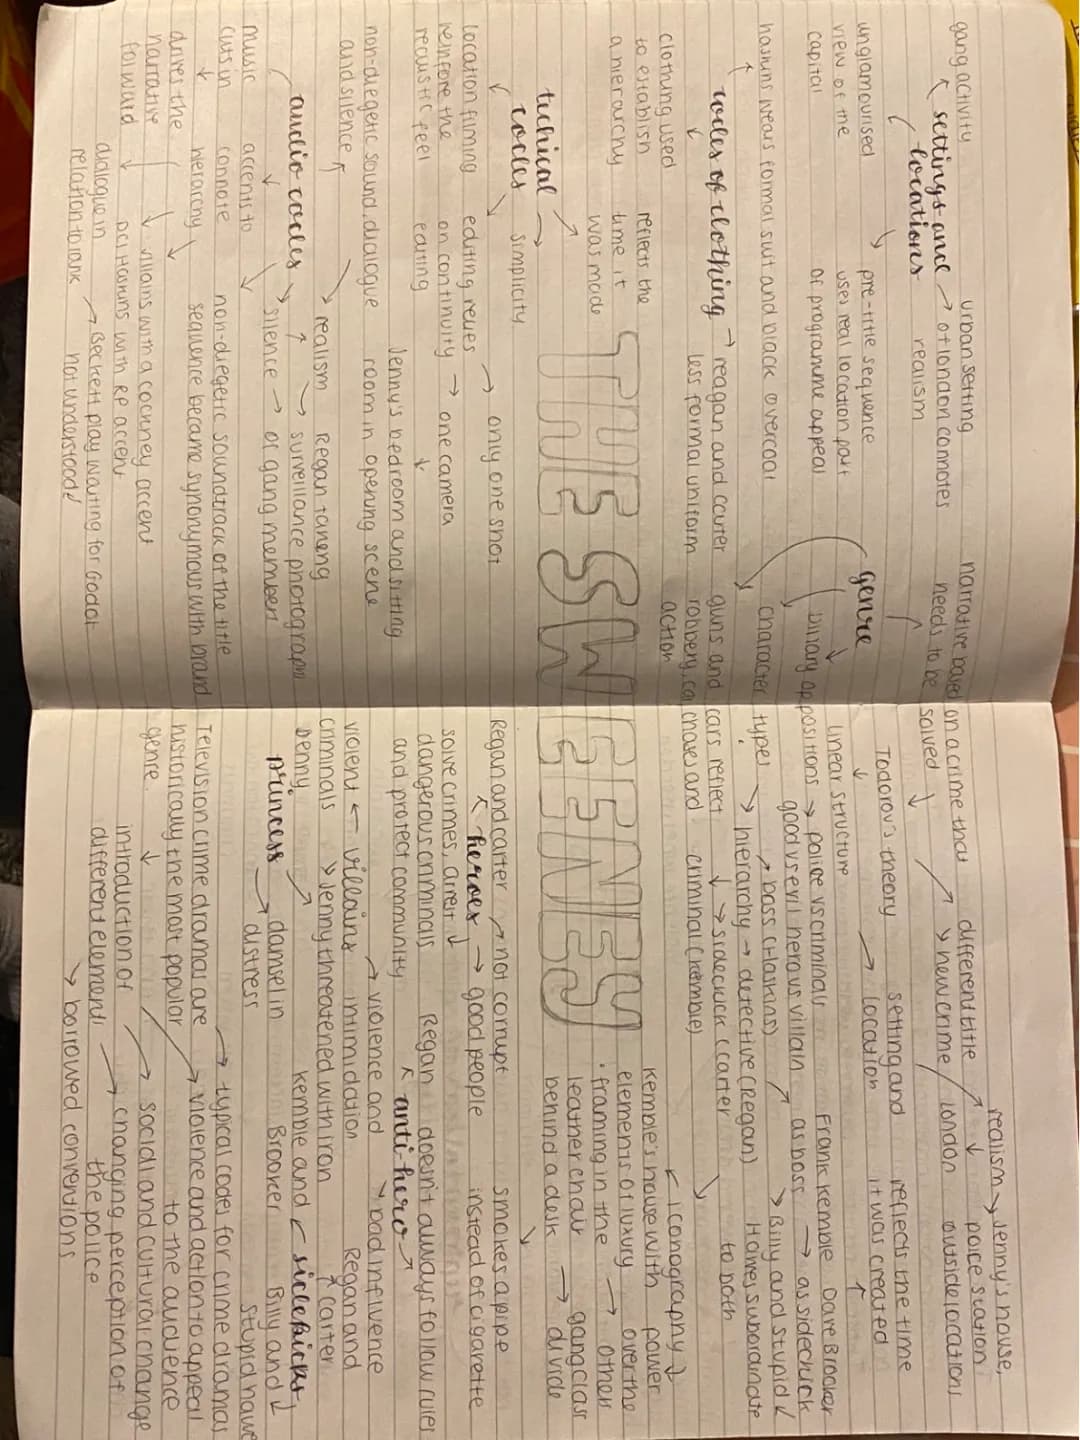 gang activity
settings and
locations
unglamourised
view of the
capital
urban setting
of london connotes
realism
pre-title sequence
uses real location part
of programme appeal
codes of clothing
haskins wears formal suit and black overcoat
clothing used
to establish
a hierarchy
reflects the
time it
was made
reagan and carter
less formal uniform
techical
codes
simplicity
location filming
reinfore the
realistic feel
editing relies
on continuity
editing
only one shot
one camera
audio codes
non-diegetic sound, dialogue
and silence
Jenny's bedroom and sitting
room in opening scene
realism
silence
Regan taking
surveillance photograph
of gang members
music
cuts in
drives the
narrative
forward
accents to
connote
hierarchy
non-diegetic soundtrack of the title
sequence became synonymous with brand
villains with a cockney accent
DCI Haskins with RP accent
dialogue in
relation to rank
Beckett play waiting for Godot
not understood
THE SWEENEY
genre
narrative based on a crime that
needs to be solved
different title
new crime
realism
Jenny's house,
police station
london outside locations
Todorov's theory
linear structure
setting and
location
reflects the time
it was created
binary oppositions
police vs criminals
good vs evil heros vs villain
Frank Kemble
as boss
Dave Brocker
as sidekick
character types
hierarchy
boss (Haskins)
detective (Regan)
sidekick (carter
criminal (kemble)
Billy and stupid
Hawes subordinate
to both
guns and cars reflect
robbery, car chases and
action
iconography
kemble's house with
elements of luxury
framing in the
leather chair
behind a desk
power
over the
other
gang class
divide
smokes a pipe
instead of cigarette
heroes
Regan and carter
solve crimes, arrest
dangerous criminals
and protect community
not corrupt
good people
anti-hero
Regan doesn't always follow rules
villains
violent
criminals
violence and
intimidation
Jenny threatened with iron
bad influence
princess
Jenny
damsel in
distress
sidekicks
Regan and
carter
kemble and
Brooker
Billy and
stupid hawe
Television crime dramas are
historically the most popular
genre.
typical codes for crime dramas
violence and action to appeal
to the audience
introduction of
different elements
social and cultural change
changing perception of
the police
borrowed conventions